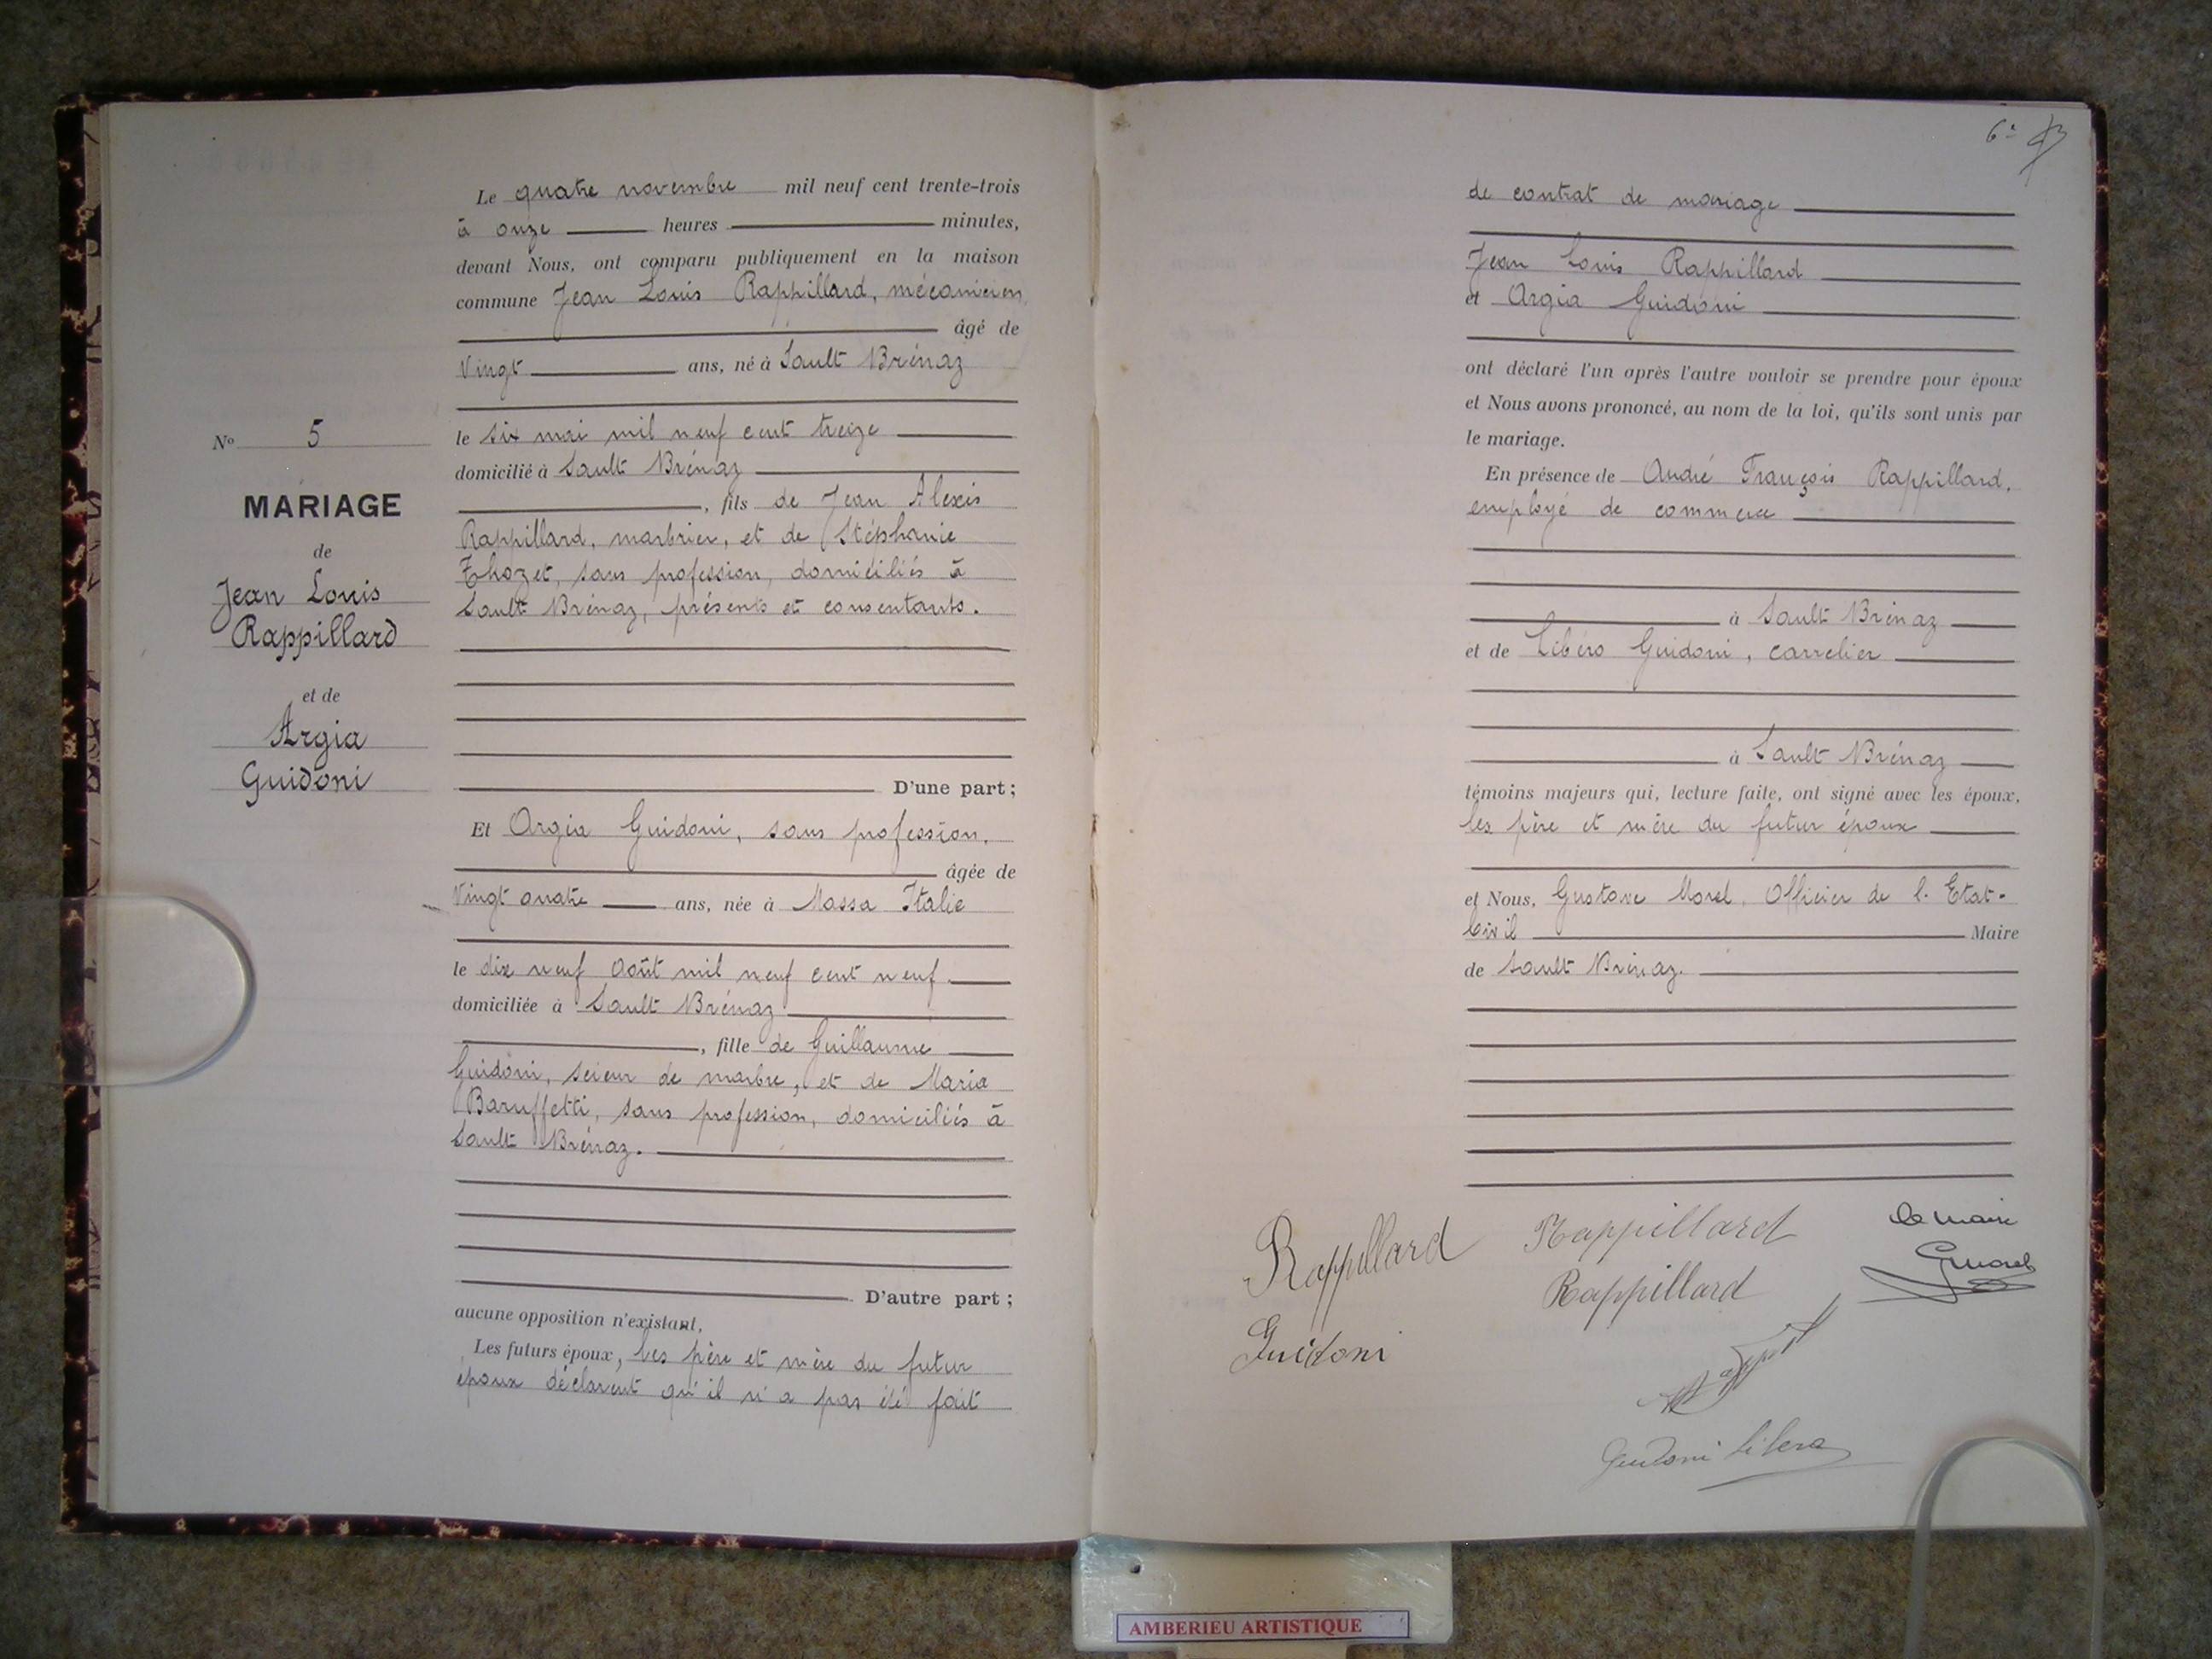 Le quatre novembre mil neuf cent trente-trois
à onze heures minutes,
devant Nous, ont comparu publiquement en la maison
commune Jean Louis Rappillard, mécanicien,
âgé de
vingt ans, né à Sault Brénaz
N° 5
le six mai mil neuf cent treize
domicilié à Sault Brénaz
MARIAGE
de
Jean Louis
Rappillard
et de
Argia
Guidoni
, fils de Jean Alexis
Rappillard, marbrier, et de Stéphanie
Thozet, sans profession, domiciliés à
Sault Brénaz, présents et consentants.
D'une part;
Et Argia Guidoni, sans profession,
âgée de
vingt quatre ans, née à Massa Italie
le dix neuf août mil neuf cent neuf
domiciliée à Sault Brénaz
, fille de Guillaume
Guidoni, scieur de marbre, et de Maria
Baruffetti, sans profession, domiciliés à
Sault Brénaz.
D'autre part;
aucune opposition n'existant,
Les futurs époux, les père et mère du futur
époux déclarent qu'il n'a pas été fait
6e
de contrat de mariage
Jean Louis Rappillard
et Argia Guidoni
ont déclaré l'un après l'autre vouloir se prendre pour époux
et Nous avons prononcé, au nom de la loi, qu'ils sont unis par
le mariage.
En présence de André François Rappillard,
employé de commerce
à Sault Brénaz
et de Libéro Guidoni, carrelier
à Sault Brénaz
témoins majeurs qui, lecture faite, ont signé avec les époux,
les père et mère du futur époux
et Nous, Gustave Morel, Officier de l'Etat-
Civil Maire
de Sault Brénaz.
Rappillard
Rappillard
le maire
Gmorel
Rappillard
Guidoni
Guidoni Libero
AMBERIEU ARTISTIQUE